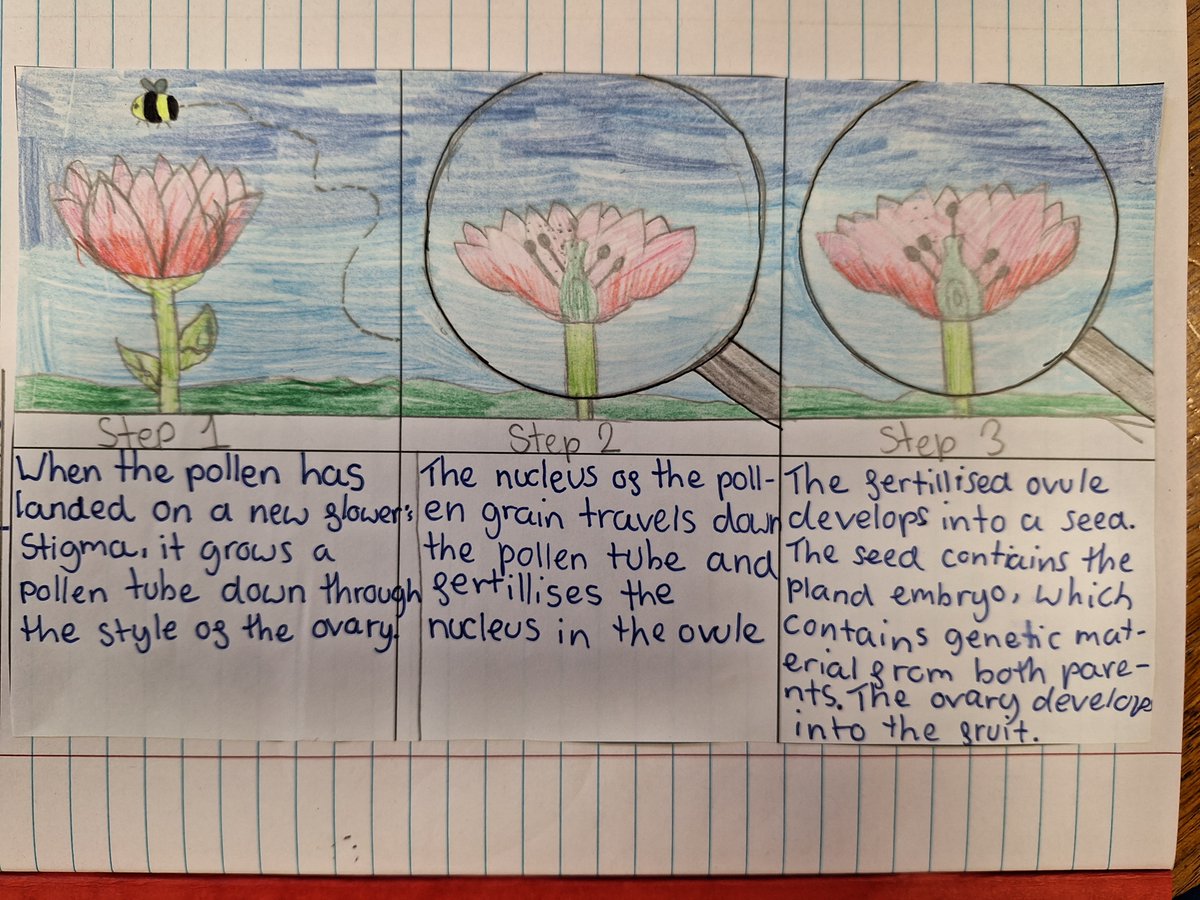 Step 1
When the pollen has
landed on a new flower's
Stigma, it grows a
pollen tube down through
the style of the ovary.
Step 2
The nucleus of the poll-
en grain travels down
the pollen tube and
fertillises the
nucleus in the ovule
Step 3
The fertillised ovule
develops into a seed.
The seed contains the
pland embryo, which
contains genetic mat-
erial from both pare-
nts. The ovary develops
into the fruit.